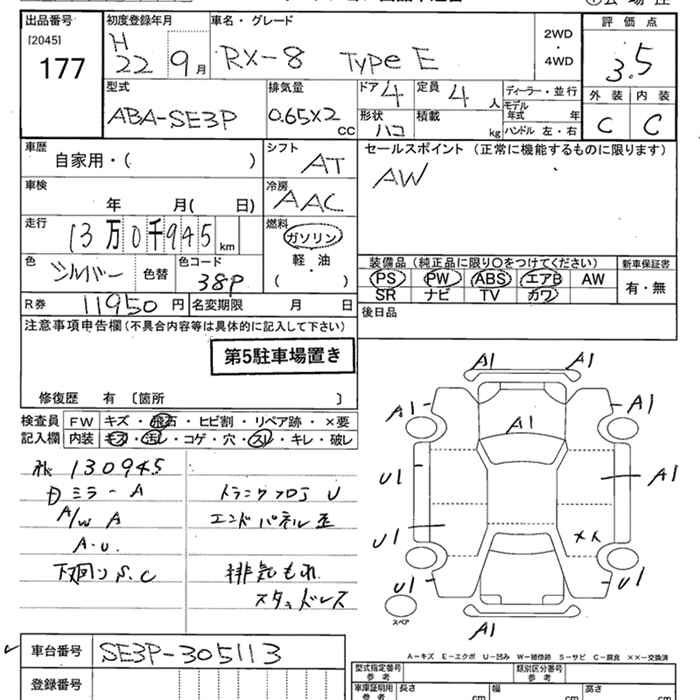 出品番号 初度登録年月 車名・グレード 評価点
[2045] H
177 22 9月 RX-8 TYPE E 2WD ・ 4WD 3.5
型式 排気量 ドア 定員 ディーラー・並行 外装 内装
ABA-SE3P 0.65X2 CC 4 4 人 モデル年式 年 C C
形状 ハコ 積載 kg ハンドル 左・右
車歴 自家用・( ) シフト AT セールスポイント (正常に機能するものに限ります)
AW
車検 年 月( 日) 冷房 AAC
走行 13万0千945 km 燃料 ガソリン
軽・油
( )
色 シルバー 色替 色コード 38P
装備品 (純正品に限り○をつけてください) 新車保証書
PS PW ABS エアB AW 有・無
SR ナビ TV カワ
R券 11950 円 名変期限 月 日 後日品
注意事項申告欄 (不具合内容等は具体的に記入して下さい)
第5駐車場置き
修復歴 有 〔箇所 〕
検査員 FW キズ・飛石・ヒビ割・リペア跡・×要
記入欄 内装 キズ・汚レ・コゲ・穴・スレ・キレ・破レ
130945
ミラーA トランクフロアU
A/W A エンドパネル歪
A・U
下回りS.C 排気もれ
スタッドレス
A1 A1
A1 A1
A1
U1 A1
U1 ××
U1 U1
スペア
A1
A-キズ E-エクボ U-凹み W-補修跡 S-サビ C-腐食 ××-交換済
車台番号 SE3P-305113
登録番号
型式指定番号 参考 類別区分番号 参考
車庫証明用 参考 長さ cm 幅 cm 高さ cm